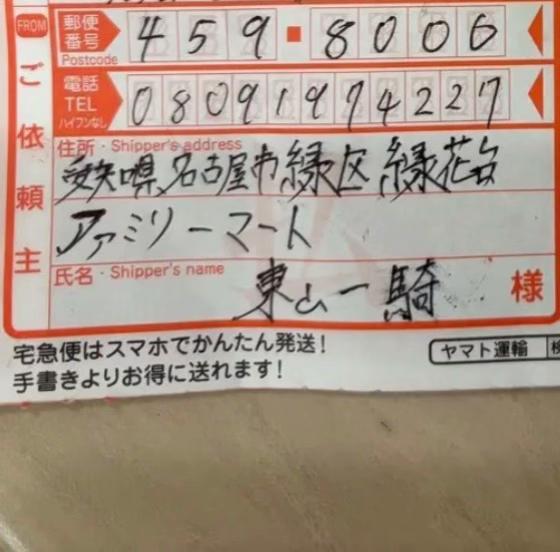 FROM
ご依頼主
郵便番号
Postcode
459-8006
電話
TEL
ハイフンなし
08091974227
住所・Shipper's address
愛知県名古屋市緑区緑花台
ファミリーマート
氏名・Shipper's name
東山一騎 様
宅急便はスマホでかんたん発送!
手書きよりお得に送れます!
ヤマト運輸